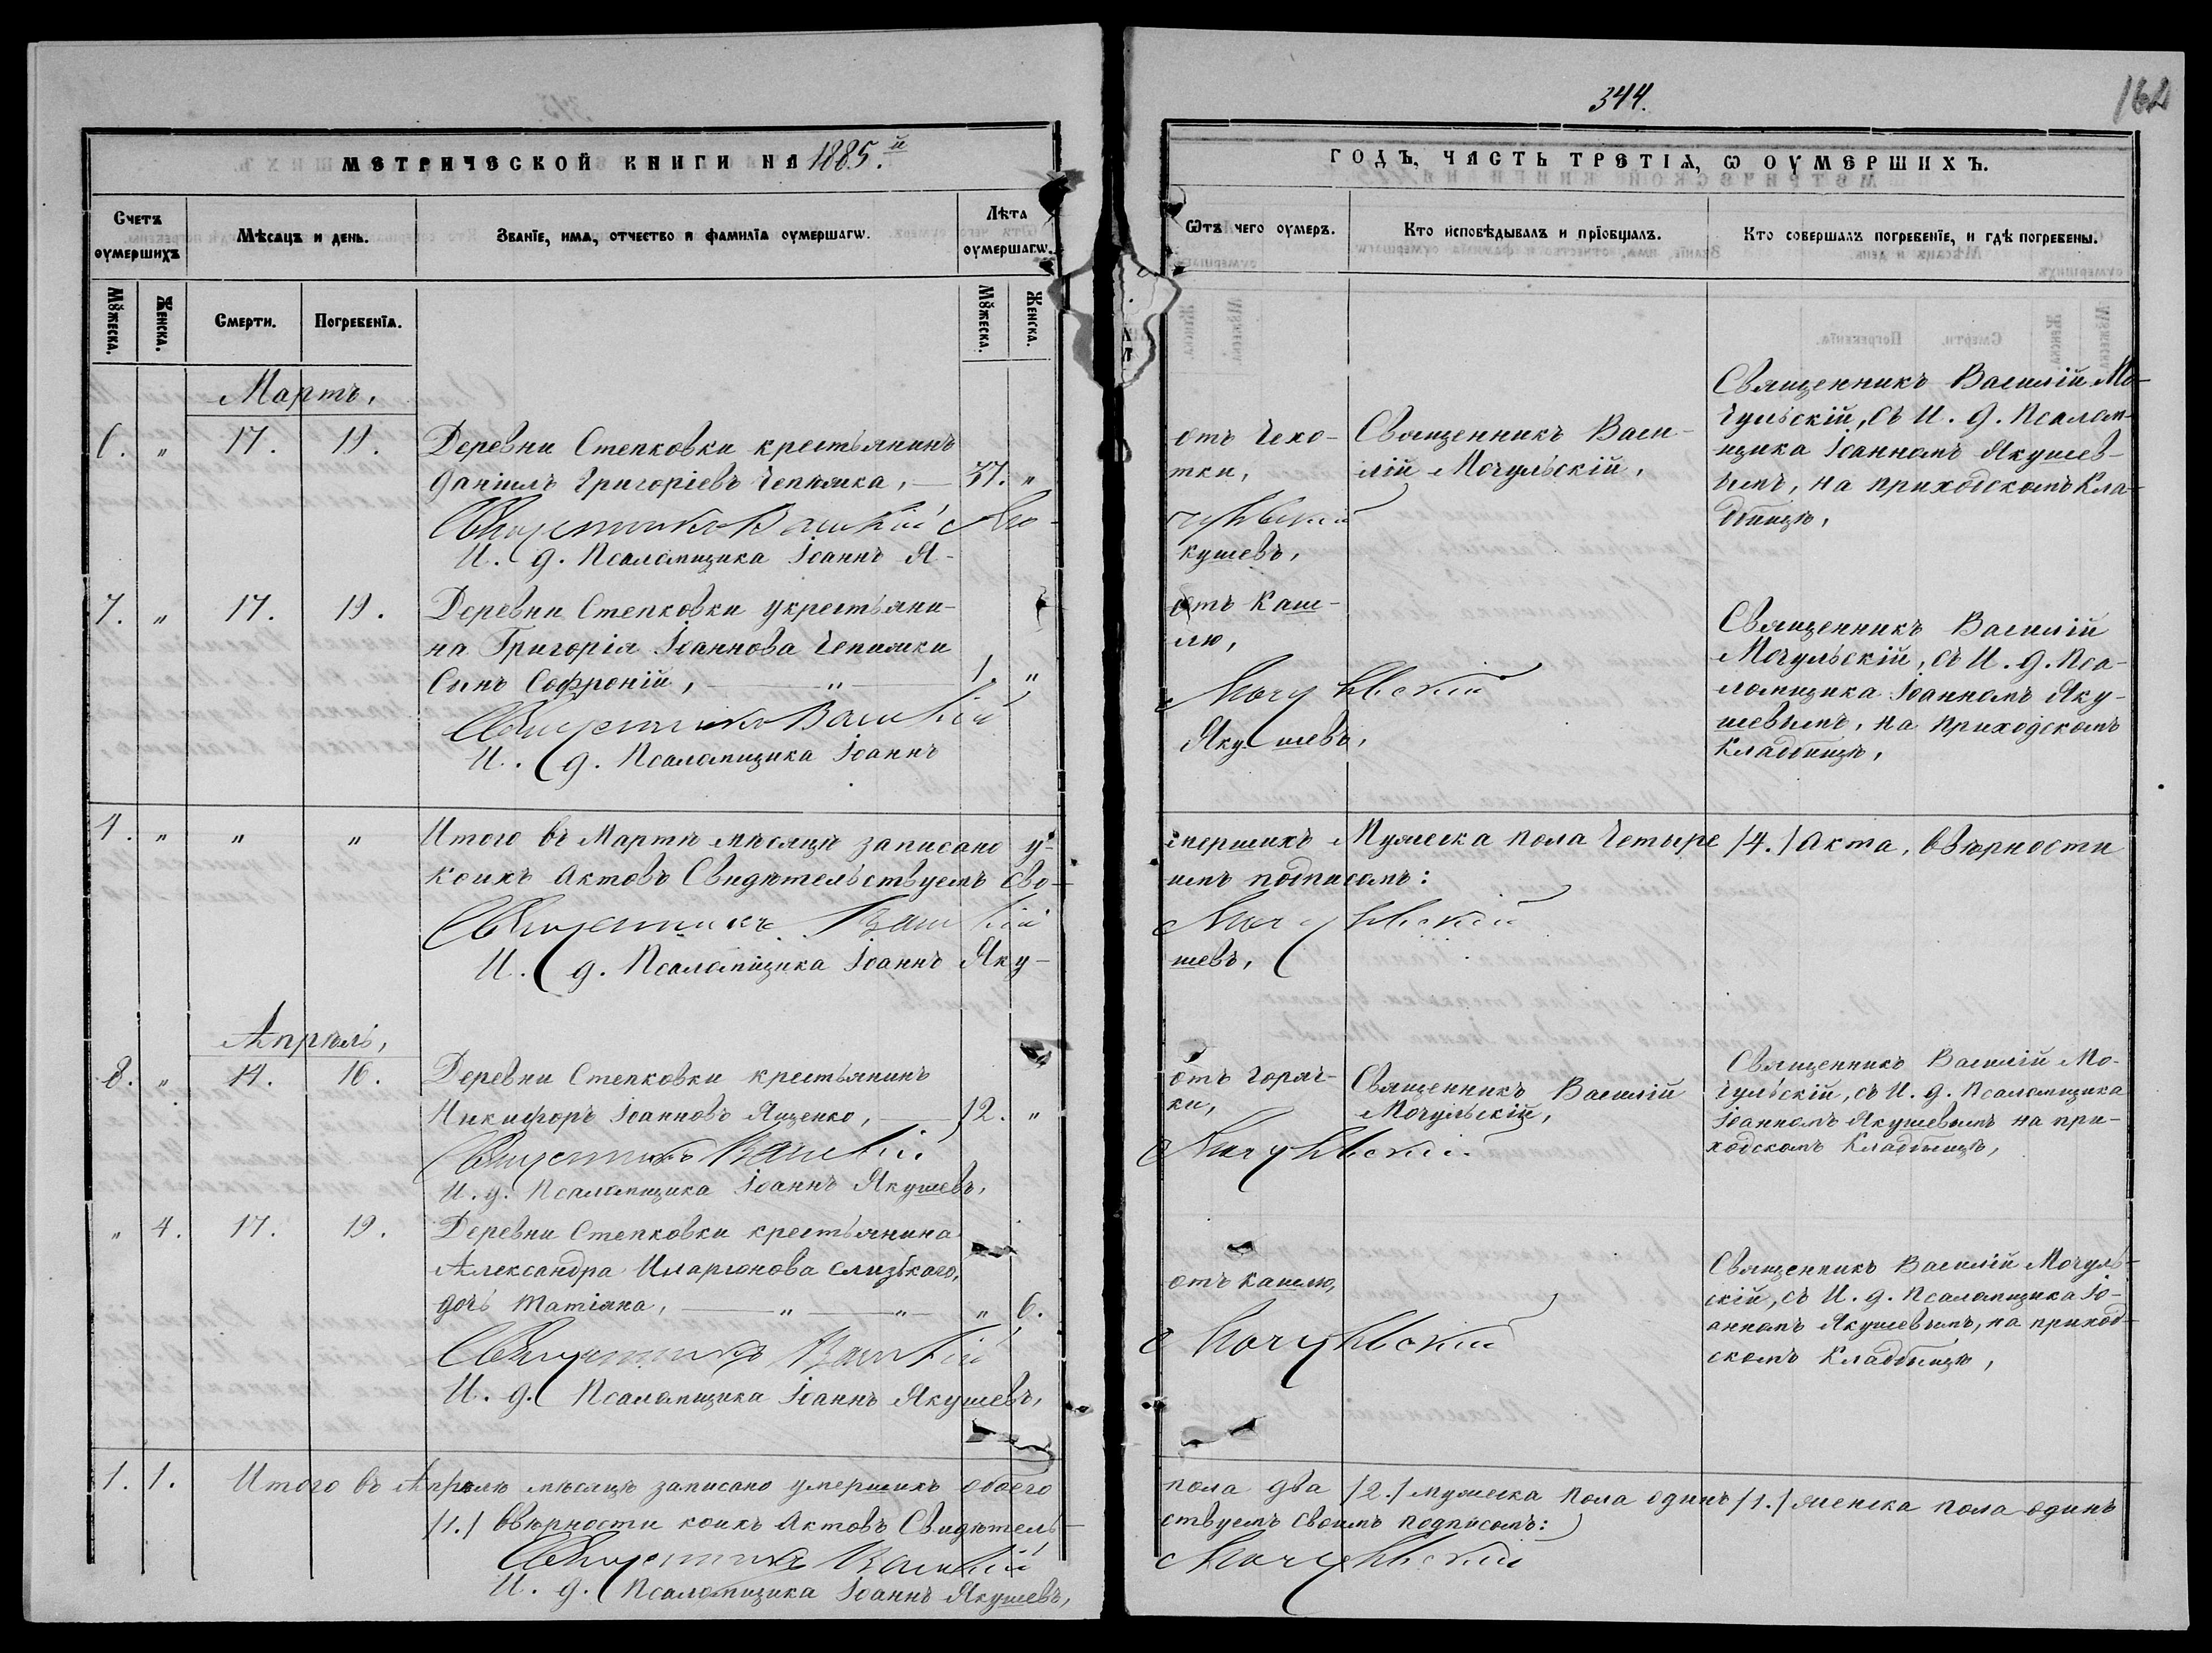 344.
162
МЕТРИЧЕСКОЙ КНИГИ НА 1885.й
ГОДЪ, ЧАСТЬ ТРЕТІѦ, Ѡ ОУМЕРШИХЪ.
Счетъ оумершихъ
Мѣсѧцъ и день.
Званїе, имѧ, отчество и фамилїѧ оумершагѡ.
Лѣта оумершагѡ.
Ѿтъ чего оумеръ.
Кто исповѣдывалъ и прїобщалъ.
Кто совершалъ погребенїе, и гдѣ погребены.
Мꙋжеска.
Женска.
Смерти.
Погребенїѧ.
Мꙋжеска.
Женска.
Мартъ,
6. " 17. 19.
Деревни Степковки крестьянинъ
Даніилъ Григоріевъ Чепижка, — 37. "
Священникъ Василій Мо-
чульскій
И. д. Псаломщика Іоаннъ Я-
кушевъ,
отъ чехо-
тки,
Священникъ Васи-
лій Мочульскій,
Священникъ Василій Мо-
чульскій, съ И. д. Псалом-
щика Іоанномъ Якушев-
ымъ, на приходскомъ Кла-
дбищѣ,
7. " 17. 19.
Деревни Степковки укрестьяни-
на Григорія Іоаннова Чепижки
Сынъ Софроній, — " — 1. "
Священникъ Василій
Мочульскій
И. д. Псаломщика Іоаннъ
Якушевъ,
отъ Каш-
лю,
Священникъ Василій
Мочульскій, съ И. д. Пса-
ломщика Іоанномъ Яку-
шевымъ, на приходскомъ
Кладбищѣ,
4. " " "
Итого въ Мартѣ мѣсяцѣ записано у-
мершихъ Мужеска пола Четыре /4./ Акта, ввѣрности
коихъ Актовъ Свидѣтельствуемъ сво-
имъ подписомъ:
Священникъ Василій
Мочульскій
И. д. Псаломщика Іоаннъ Яку-
шевъ,
Апрѣль,
8. " 14. 16.
Деревни Степковки крестьянинъ
Никифоръ Іоанновъ Ященко, — 12. "
Священникъ Василій
Мочульскій
И. д. Псаломщика Іоаннъ Якушевъ,
отъ горяч-
ки,
Священникъ Василій
Мочульскій,
Священникъ Василій Мо-
чульскій, съ И. д. Псаломщика
Іоанномъ Якушевымъ на при-
ходскомъ Кладбищѣ,
" 4. 17. 19.
Деревни Степковки крестьянина
Александра Иларіонова Слизькаго,
дочь Татіяна, — " — " — " 6.
Священникъ Василій
Мочульскій
И. д. Псаломщика Іоаннъ Якушевъ,
отъ кашлю,
Священникъ Василій Мочуль-
скій, съ И. д. Псаломщика Іо-
анномъ Якушевымъ, на приход-
скомъ Кладбищѣ,
1. 1.
Итого въ Апрѣлѣ мѣсяцѣ записано умершихъ обоего
пола два /2./ мужеска пола одинъ /1./ женска пола одинъ
/1./ ввѣрности коихъ Актовъ Свидѣтель-
ствуемъ своимъ подписомъ:
Священникъ Василій
Мочульскій
И. д. Псаломщика Іоаннъ Якушевъ,